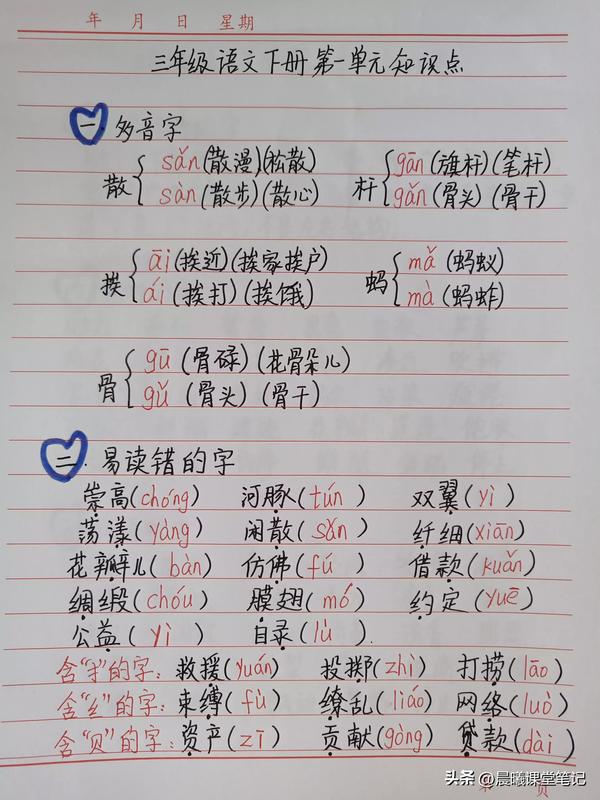 年 月 日 星期
三年级语文下册第一单元知识点
一.多音字
散{ sǎn(散漫)(松散) 杆{ gān(旗杆)(笔杆)
sàn(散步)(散心) gǎn(骨头)(骨干)
挨{ āi(挨近)(挨家挨户) 蚂{ mǎ(蚂蚁)
ái(挨打)(挨饿) mà(蚂蚱)
骨{ gū(骨碌)(花骨朵儿)
gǔ(骨头)(骨干)
二.易读错的字
崇高(chóng) 河豚(tún) 双翼(yì)
荡漾(yàng) 闲散(sǎn) 纤细(xiān)
花瓣儿(bàn) 仿佛(fú) 借款(kuǎn)
绸缎(chóu) 膜翅(mó) 约定(yuē)
公益(yì) 目录(lù).
含“扌”的字:救援(yuán) 投掷(zhì) 打捞(lāo)
含“纟”的字:束缚(fù) 缭乱(liáo) 网络(luò)
含“贝”的字:资产(zī) 贡献(gòng) 贷款(dài)
头条@晨曦课堂笔记
页